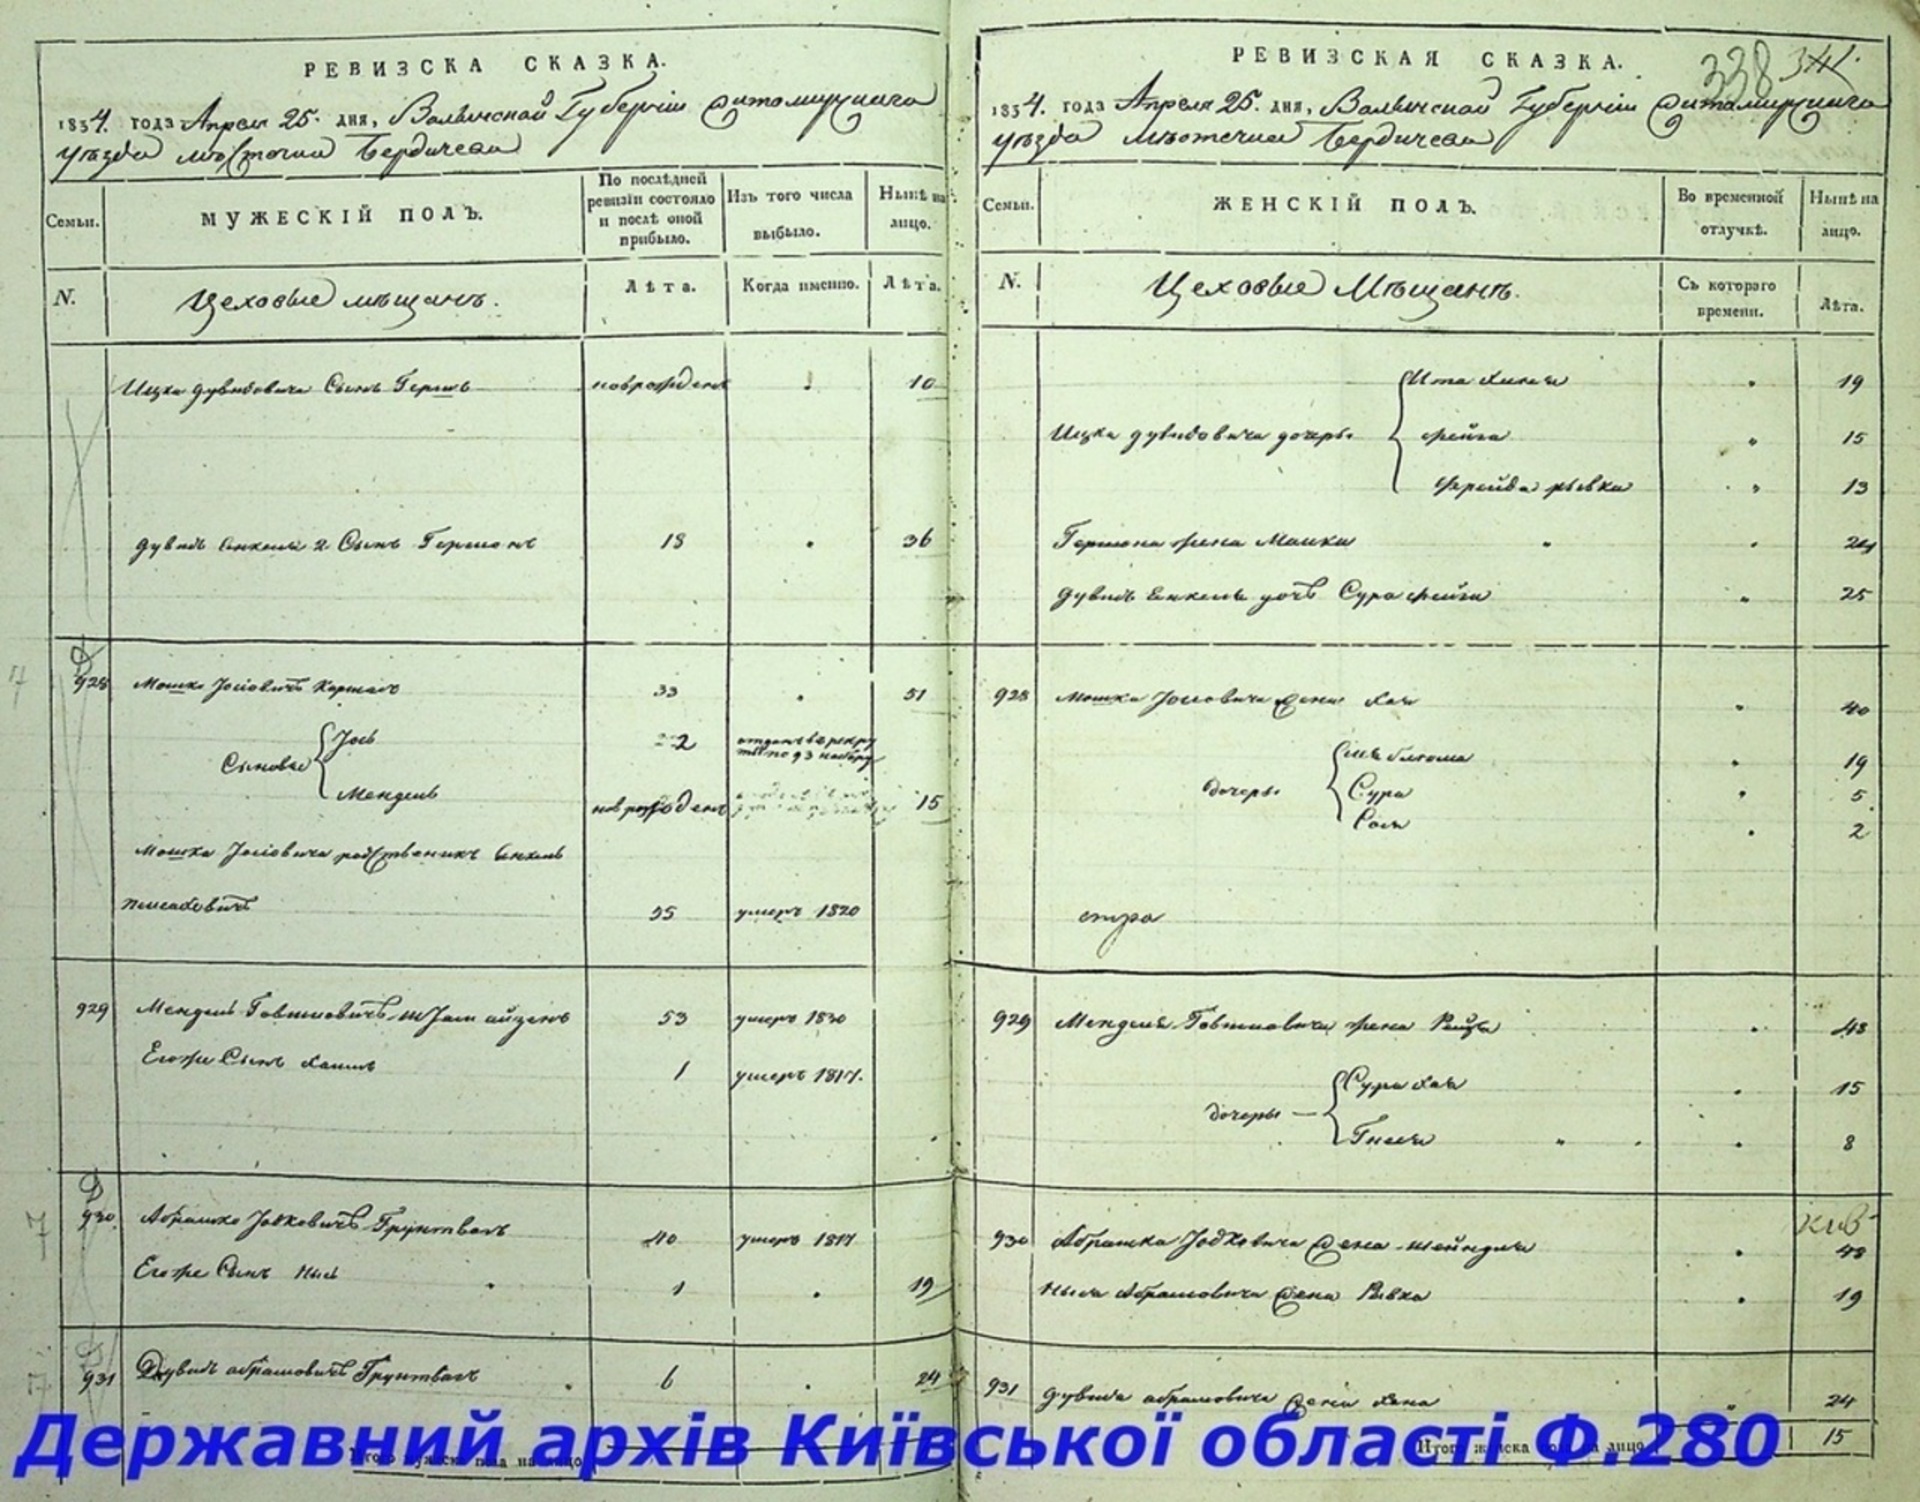 РЕВИЗСКА СКАЗКА.
1834. года Апреля 25. дня, Волынской Губернiи Житомирскаго
уѣзда мѣстечка Бердичева
Семьи.
МУЖЕСКIЙ ПОЛЪ.
По послѣдней ревизiи состояло и послѣ оной прибыло.
Изъ того числа выбыло.
Нынѣ на лицо.
N.
Цеховые мѣщанъ.
Лѣта.
Когда именно.
Лѣта.
Ицка Дувидовича Сынъ Гершъ новорожденъ 10
Дувидъ Енкеля 2 Сынъ Гершонъ 18 36
928 Мошко Iосiовичъ 33 51
Сыновье Iось 2
Мендель новорожденъ 15
Мошка Iосiовича родственикъ Енкель
умеръ 1820
929 Мендель 53 умеръ 1830
Егоже Сынъ Хаимъ 1 умеръ 1817.
930 Абрашко Грунтвалъ 40 умеръ 1817
Егоже Сынъ 1 19
931 Дувидъ Абрамовичъ Грунтвалъ 6 24
Итого мужеска пола на лицо
РЕВИЗСКАЯ СКАЗКА.
338
1834. года Апреля 25. дня, Волынской Губернiи Житомирскаго
уѣзда мѣстечка Бердичева
Семьи.
ЖЕНСКIЙ ПОЛЪ.
Во временной отлучкѣ.
Нынѣ на лицо.
N.
Цеховые Мѣщанъ.
Съ котораго времени.
Лѣта.
Ита 19
Ицка Дувидовича дочеры Фейга 15
Фрейда Рывка 13
Гершона жена Малка 24
Дувидъ Енкеля дочъ Сура Фейга 25
928 Мошка Iосiовича жена Хая 40
19
дочеры Сура 5
2
929 Менделя жена Рейза 48
дочеры Сура Хая 15
Гнеся 8
930 Абрашка жена Шейндля 48
Абрамовича жена Рывка 19
931 Дувида Абрамовича жена Хана 24
Итого женска пола на лицо 15
Державний архів Київської області Ф.280